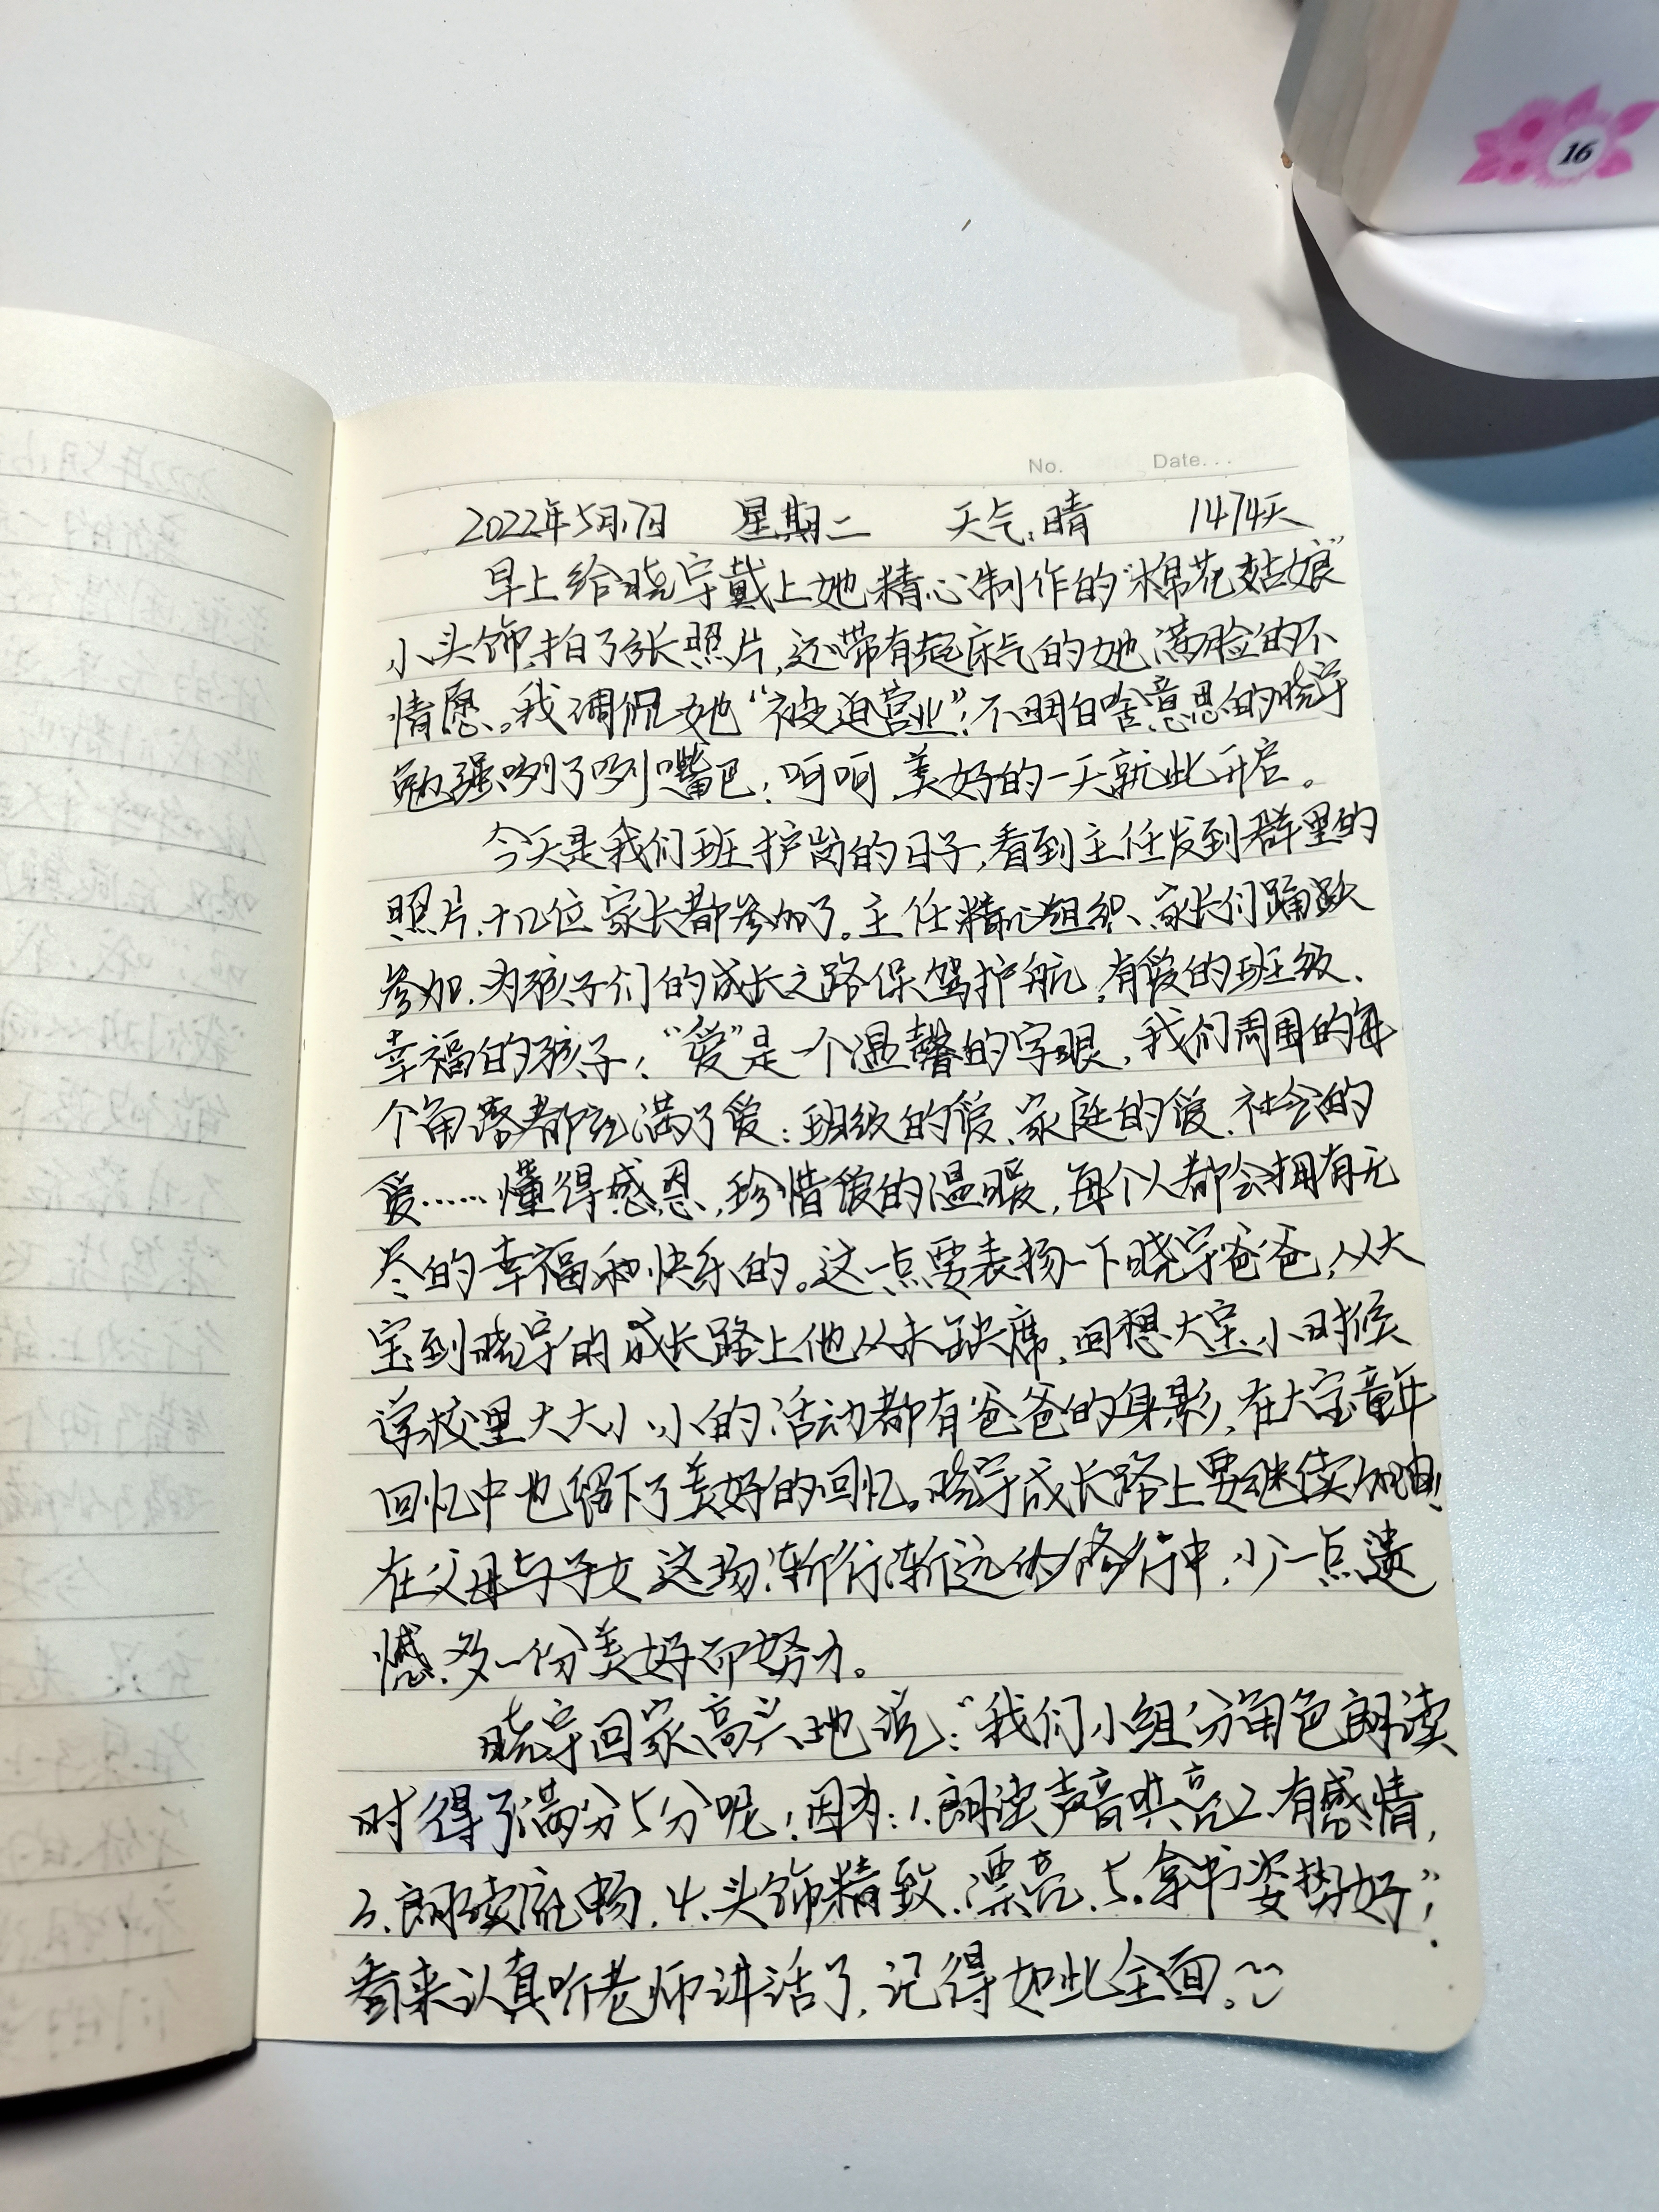 16
No. Date...
2022年5月17日 星期二 天气:晴 1474天
早上给晓宇戴上她精心制作的“棉花姑娘”
小头饰,拍了张照片,还带有起床气的她满脸的不
情愿。我调侃她“被迫营业”;不明白啥意思的晓宇
勉强咧了咧嘴巴;呵呵,美好的一天就此开启。
今天是我们班护岗的日子,看到主任发到群里的
照片,十几位家长都参加了。主任精心组织、家长们踊跃
参加,为孩子们的成长之路保驾护航,有爱的班级、
幸福的孩子;“爱”是一个温馨的字眼,我们周围的每
个角落都充满了爱:班级的爱、家庭的爱、社会的
爱……懂得感恩,珍惜爱的温暖,每个人都会拥有无
尽的幸福和快乐的。这一点要表扬一下晓宇爸爸,从大
宝到晓宇的成长路上他从未缺席,回想大宝小时候
学校里大大小小的活动都有爸爸的身影,在大宝童年
回忆中也留下了美好的回忆。晓宇成长路上要继续加油!
在父母与子女这场渐行渐远的修行中,少一点遗
憾,多一份美好而努力。
晓宇回家高兴地说:“我们小组分角色朗读
时得了满分5分呢!因为:1.朗读声音洪亮2.有感情,
3.朗读流畅,4.头饰精致、漂亮,5.拿书姿势好”;
看来认真听老师讲话了,记得如此全面。~~